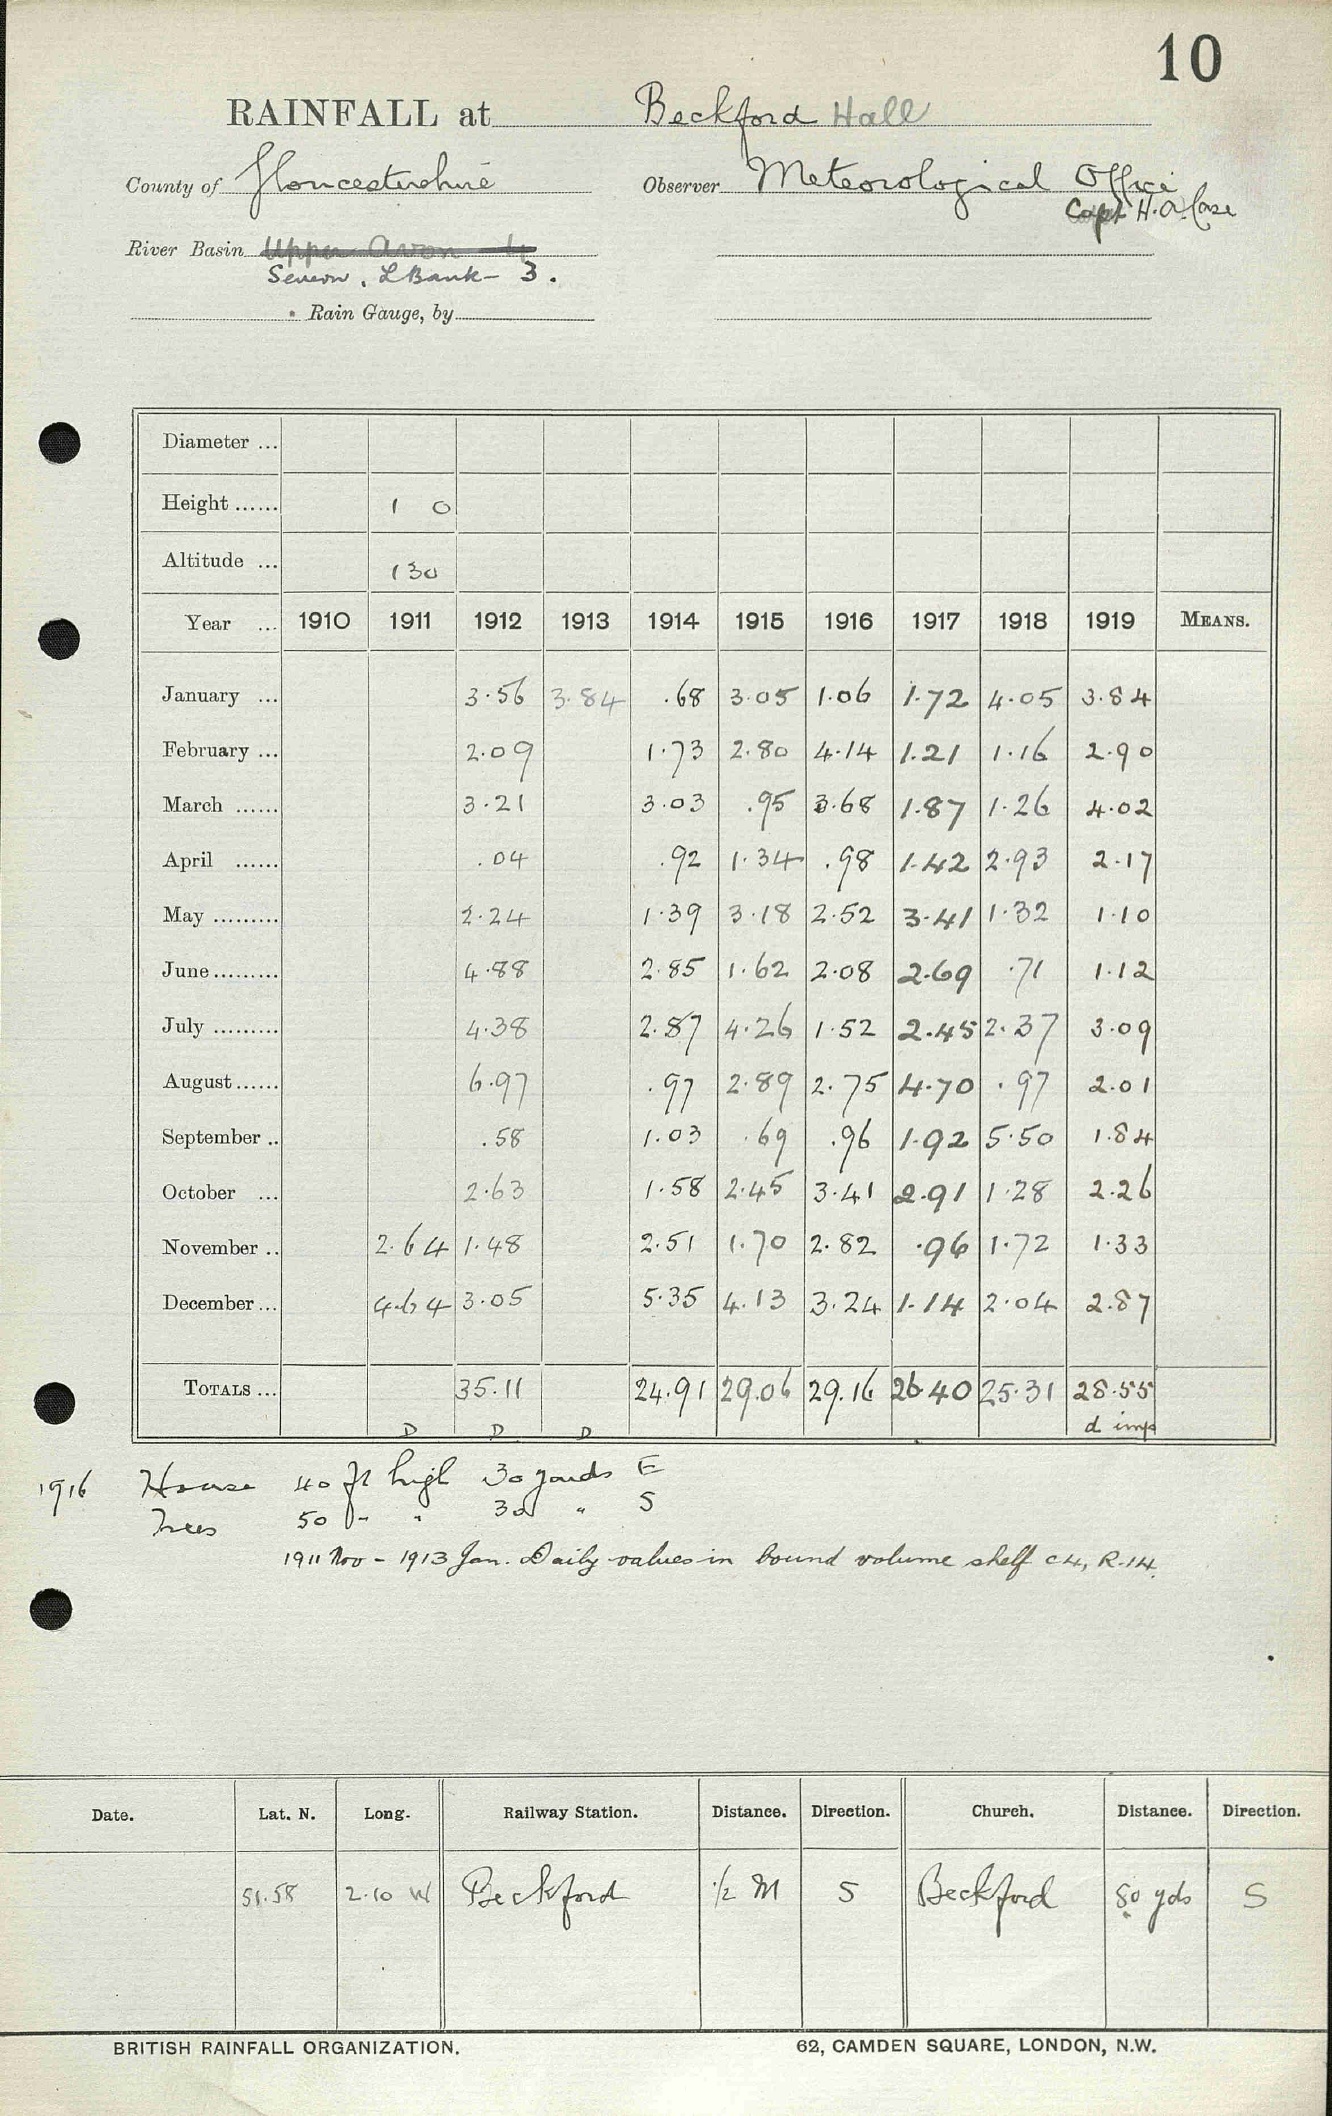 10
RAINFALL at Beckford Hall
County of Gloucestershire Observer Meteorological Office
Capt H. A. Case
River Basin Upper Avon 4
Severn, L Bank - 3.
Rain Gauge, by
Diameter ...
Height ...... 1 0
Altitude ... 130
Year ... 1910 1911 1912 1913 1914 1915 1916 1917 1918 1919 MEANS.
January ... 3.56 3.84 .68 3.05 1.06 1.72 4.05 3.84
February ... 2.09 1.73 2.80 4.14 1.21 1.16 2.90
March ...... 3.21 3.03 .95 3.68 1.87 1.26 4.02
April ...... .04 .92 1.34 .98 1.42 2.93 2.17
May ......... 2.24 1.39 3.18 2.52 3.41 1.32 1.10
June ......... 4.88 2.85 1.62 2.08 2.69 .71 1.12
July ......... 4.38 2.87 4.26 1.52 2.45 2.37 3.09
August ...... 6.97 .97 2.89 2.75 4.70 .97 2.01
September .. .58 1.03 .69 .96 1.92 5.50 1.84
October ... 2.63 1.58 2.45 3.41 2.91 1.28 2.26
November .. 2.64 1.48 2.51 1.70 2.82 .96 1.72 1.33
December ... 4.64 3.05 5.35 4.13 3.24 1.14 2.04 2.87
TOTALS ... 35.11 24.91 29.06 29.16 26.40 25.31 28.55
D D D d imp
1916 House 40 ft high 30 yards E
Trees 50 " " 30 " S
1911 Nov - 1913 Jan. Daily values in bound volume shelf C4, R.14.
Date. Lat. N. Long. Railway Station. Distance. Direction. Church. Distance. Direction.
51.58 2.10 W Beckford 1/2 M S Beckford 80 yds S
BRITISH RAINFALL ORGANIZATION. 62, CAMDEN SQUARE, LONDON, N.W.